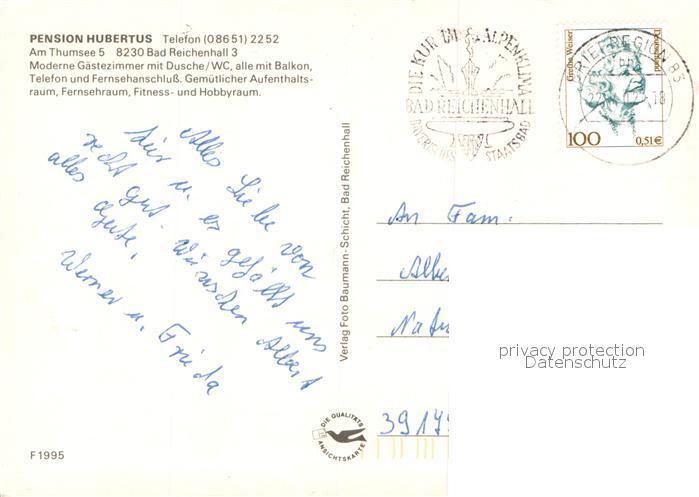 PENSION HUBERTUS Telefon (08651) 2252
Am Thumsee 5 8230 Bad Reichenhall 3
Moderne Gästezimmer mit Dusche/WC, alle mit Balkon,
Telefon und Fernsehanschluß. Gemütlicher Aufenthalts-
raum, Fernsehraum, Fitness- und Hobbyraum.
DIE KUR IM ALPENKLIMA
BAD REICHENHALL
BAYERISCHES STAATSBAD
Grethe Weiser
Deutschland
100 0,51€
BRIEFREGION 83
18
Alles Liebe von
hier u. es gefällt uns
recht gut wünschen Albert
alles Gute.
Werner u. Frieda
Verlag Foto Baumann-Schicht, Bad Reichenhall
An Fam.
Albe
privacy protection
Datenschutz
DIE QUALITÄTS
ANSICHTSKARTE
F1995